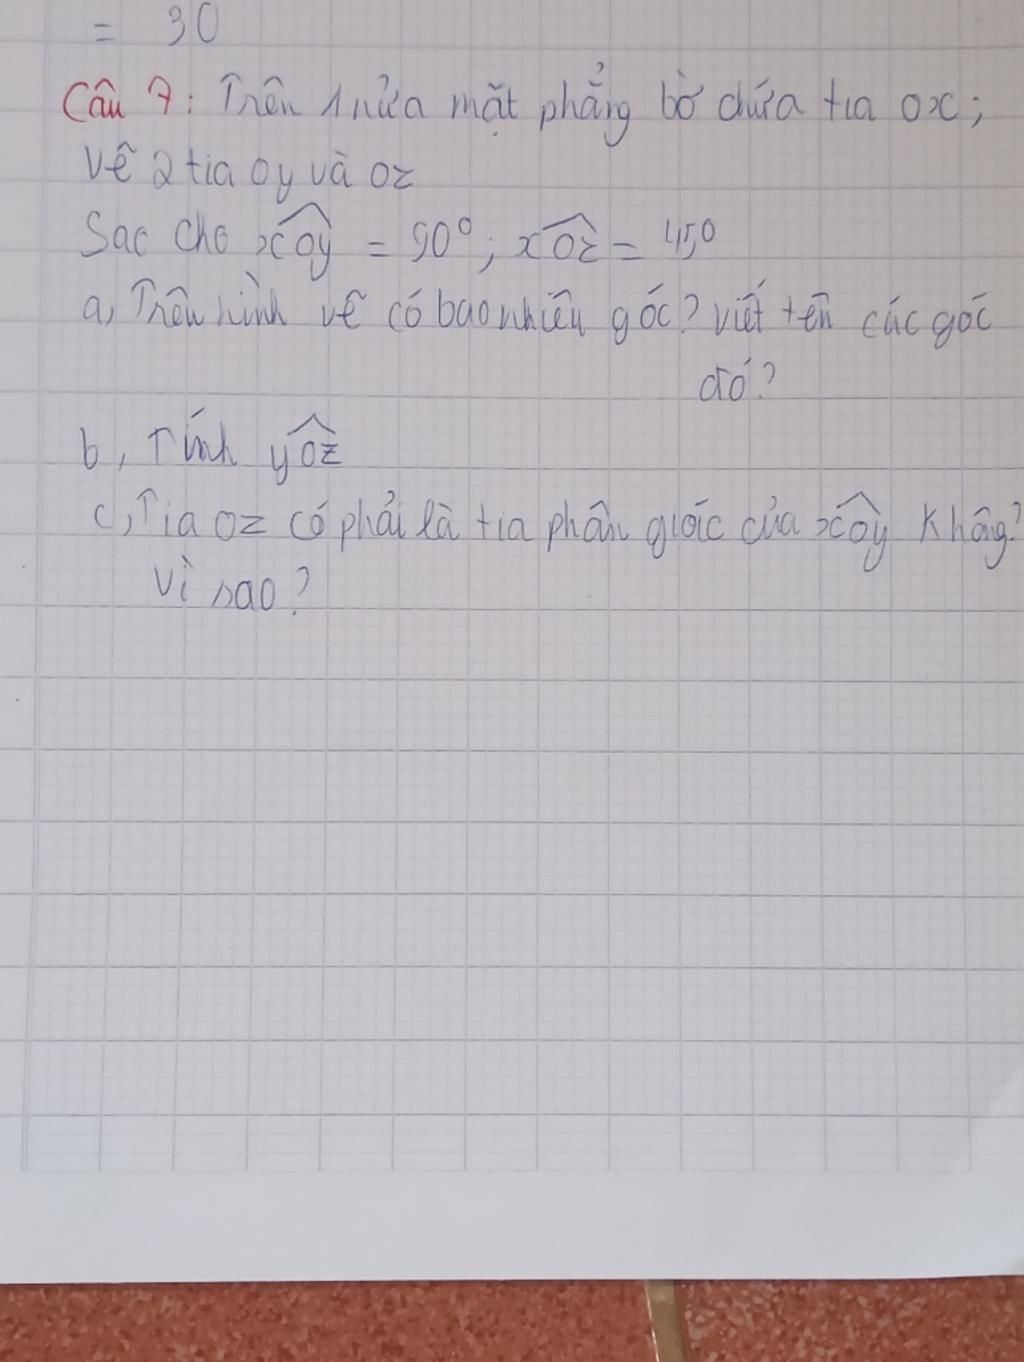 = 30
Câu 7: Trên 1 nửa mặt phẳng bờ chứa tia ox;
vẽ 2 tia oy và oz
Sao cho xOy = 90°; xOz = 45°
a, Trên hình vẽ có bao nhiêu góc? viết tên các góc
đó?
b, Tính yOz
c, Tia oz có phải là tia phân giác của xOy không?
Vì sao?